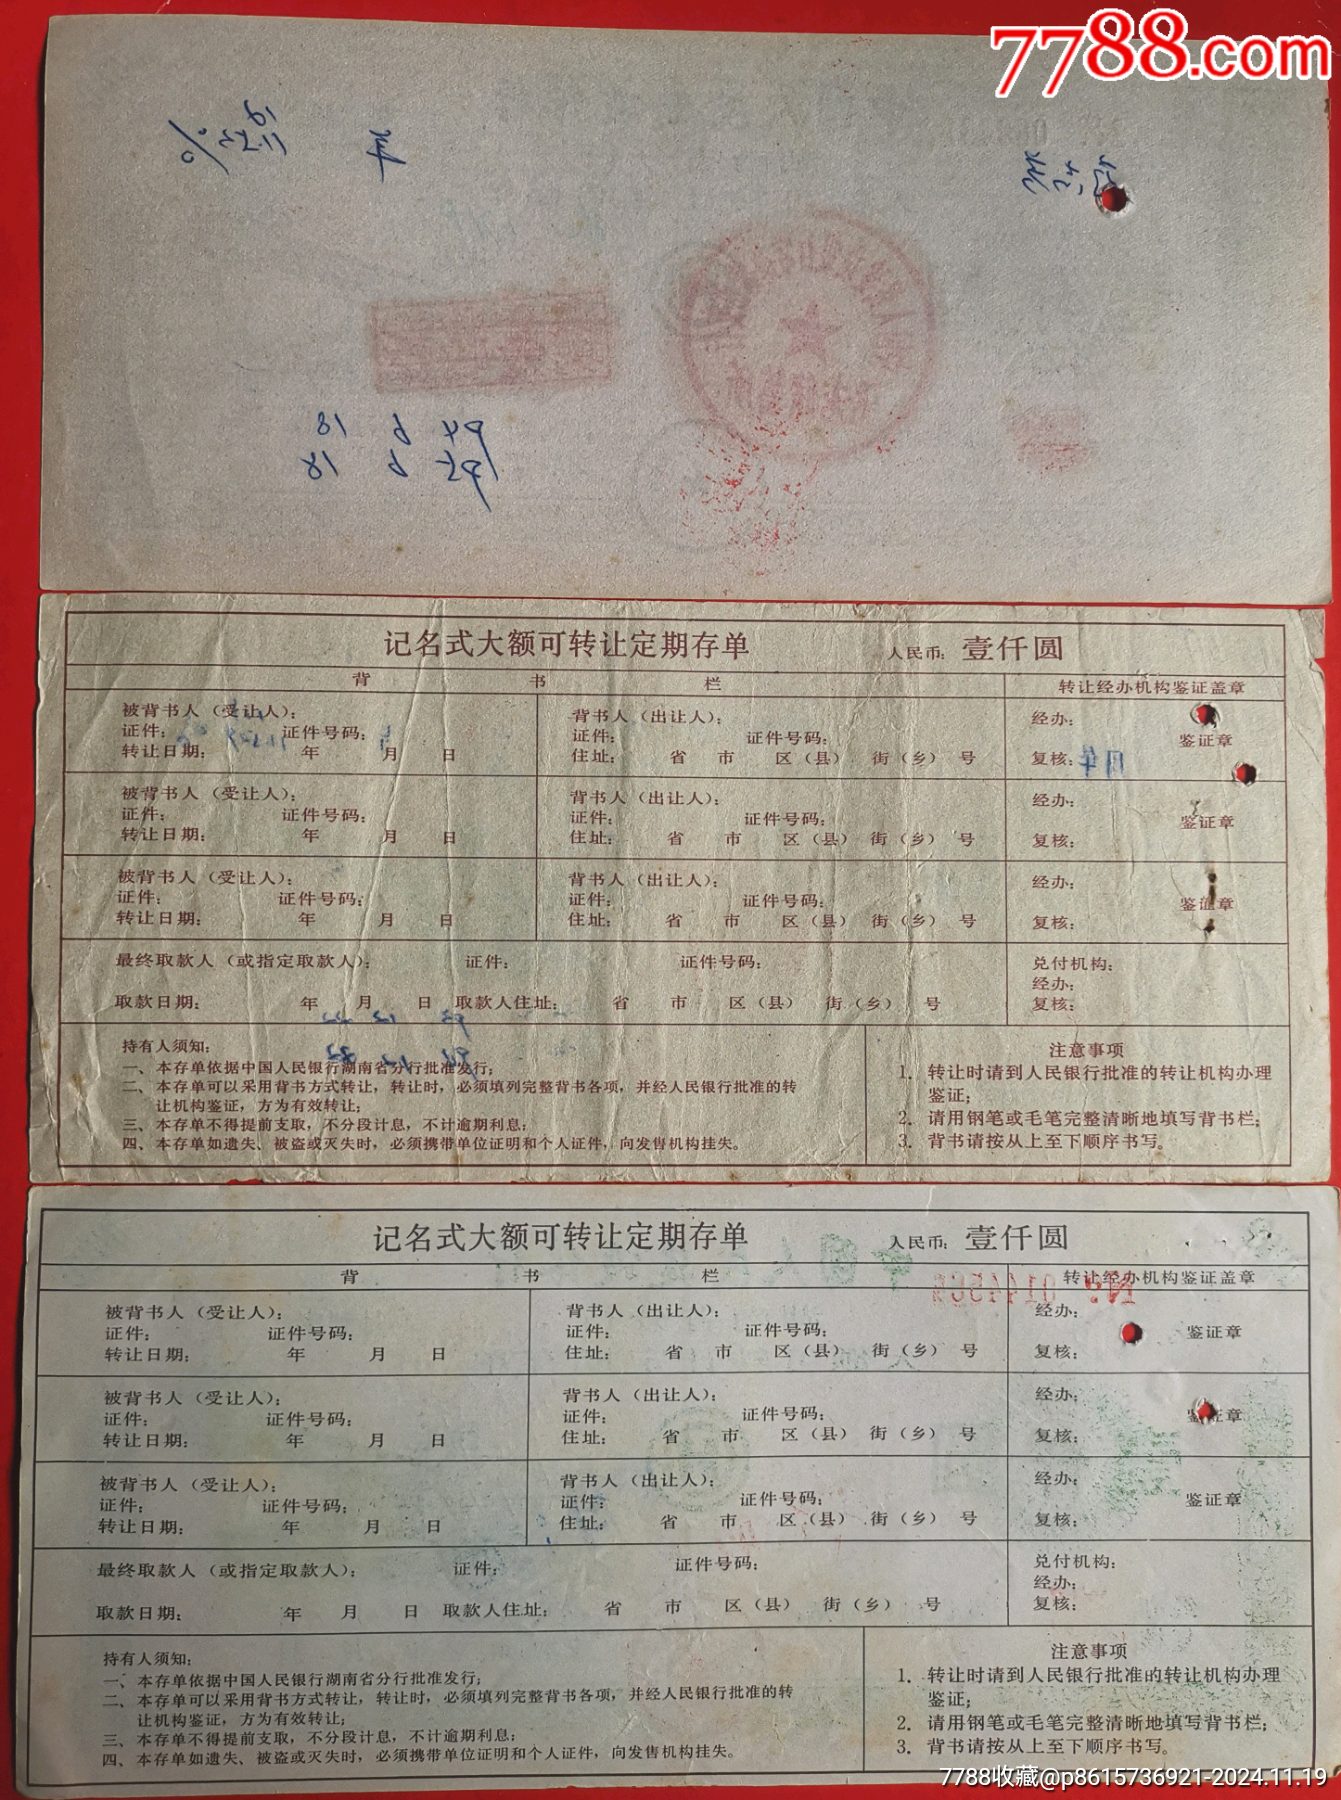 7788.com
记名式大额可转让定期存单 人民币：壹仟圆
背 书 栏 转让经办机构鉴证盖章
被背书人（受让人）： 背书人（出让人）： 经办：
证件： 证件号码： 证件： 证件号码： 鉴证章
转让日期： 年 月 日 住址： 省 市 区（县） 街（乡） 号 复核：
被背书人（受让人）： 背书人（出让人）： 经办：
证件： 证件号码： 证件： 证件号码： 鉴证章
转让日期： 年 月 日 住址： 省 市 区（县） 街（乡） 号 复核：
被背书人（受让人）： 背书人（出让人）： 经办：
证件： 证件号码： 证件： 证件号码： 鉴证章
转让日期： 年 月 日 住址： 省 市 区（县） 街（乡） 号 复核：
最终取款人（或指定取款人）： 证件： 证件号码： 兑付机构：
经办：
取款日期： 年 月 日 取款人住址： 省 市 区（县） 街（乡） 号 复核：
持有人须知：
一、本存单依据中国人民银行湖南省分行批准发行；
二、本存单可以采用背书方式转让，转让时，必须填列完整背书各项，并经人民银行批准的转
让机构鉴证，方为有效转让；
三、本存单不得提前支取，不分段计息，不计逾期利息；
四、本存单如遗失、被盗或灭失时，必须携带单位证明和个人证件，向发售机构挂失。
注意事项
1．转让时请到人民银行批准的转让机构办理
鉴证；
2．请用钢笔或毛笔完整清晰地填写背书栏；
3．背书请按从上至下顺序书写。
记名式大额可转让定期存单 人民币：壹仟圆
背 书 栏 转让经办机构鉴证盖章
被背书人（受让人）： 背书人（出让人）： 经办：
证件： 证件号码： 证件： 证件号码： 鉴证章
转让日期： 年 月 日 住址： 省 市 区（县） 街（乡） 号 复核：
被背书人（受让人）： 背书人（出让人）： 经办：
证件： 证件号码： 证件： 证件号码： 鉴证章
转让日期： 年 月 日 住址： 省 市 区（县） 街（乡） 号 复核：
被背书人（受让人）： 背书人（出让人）： 经办：
证件： 证件号码： 证件： 证件号码： 鉴证章
转让日期： 年 月 日 住址： 省 市 区（县） 街（乡） 号 复核：
最终取款人（或指定取款人）： 证件： 证件号码： 兑付机构：
经办：
取款日期： 年 月 日 取款人住址： 省 市 区（县） 街（乡） 号 复核：
持有人须知：
一、本存单依据中国人民银行湖南省分行批准发行；
二、本存单可以采用背书方式转让，转让时，必须填列完整背书各项，并经人民银行批准的转
让机构鉴证，方为有效转让；
三、本存单不得提前支取，不分段计息，不计逾期利息；
四、本存单如遗失、被盗或灭失时，必须携带单位证明和个人证件，向发售机构挂失。
注意事项
1．转让时请到人民银行批准的转让机构办理
鉴证；
2．请用钢笔或毛笔完整清晰地填写背书栏；
3．背书请按从上至下顺序书写。
7788收藏@p8615736921-2024.11.19